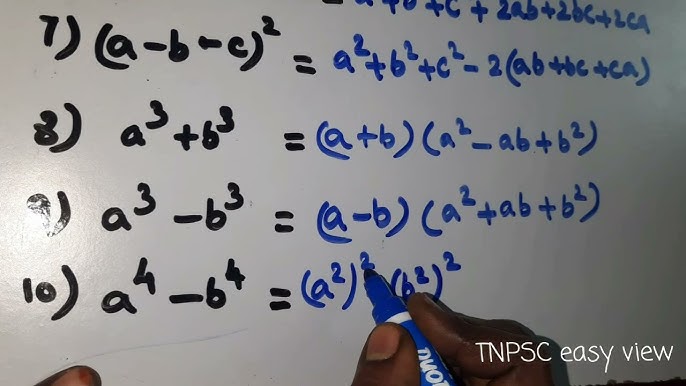 = a² + b² + c² + 2ab + 2bc + 2ca
7) (a - b - c)² = a² + b² + c² - 2(ab + bc + ca)
8) a³ + b³ = (a + b) (a² - ab + b²)
9) a³ - b³ = (a - b) (a² + ab + b²)
10) a⁴ - b⁴ = (a²)² (b²)²
DUO
TNPSC easy view